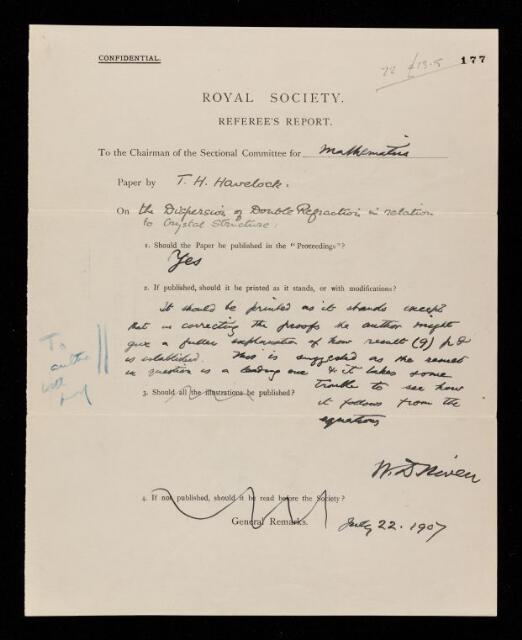 CONFIDENTIAL.
177
ROYAL SOCIETY.
REFEREE'S REPORT.
To the Chairman of the Sectional Committee for Mathematics
Paper by T. H. Havelock.
On the Dispersion of Double Refraction in relation
to Crystal Structure.
1. Should the Paper be published in the "Proceedings"?
Yes
2. If published, should it be printed as it stands, or with modifications?
It should be printed as it stands except
that in correcting the proofs the author might
give a fuller explanation of how result (9) p 8
is established. This is suggested as the result
in question is a leading one & it takes some
trouble to see how
it follows from the
equations
To
author
with
proof
3. Should all the illustrations be published?
W. D. Niven
4. If not published, should it be read before the Society?
General Remarks.
July 22. 1907